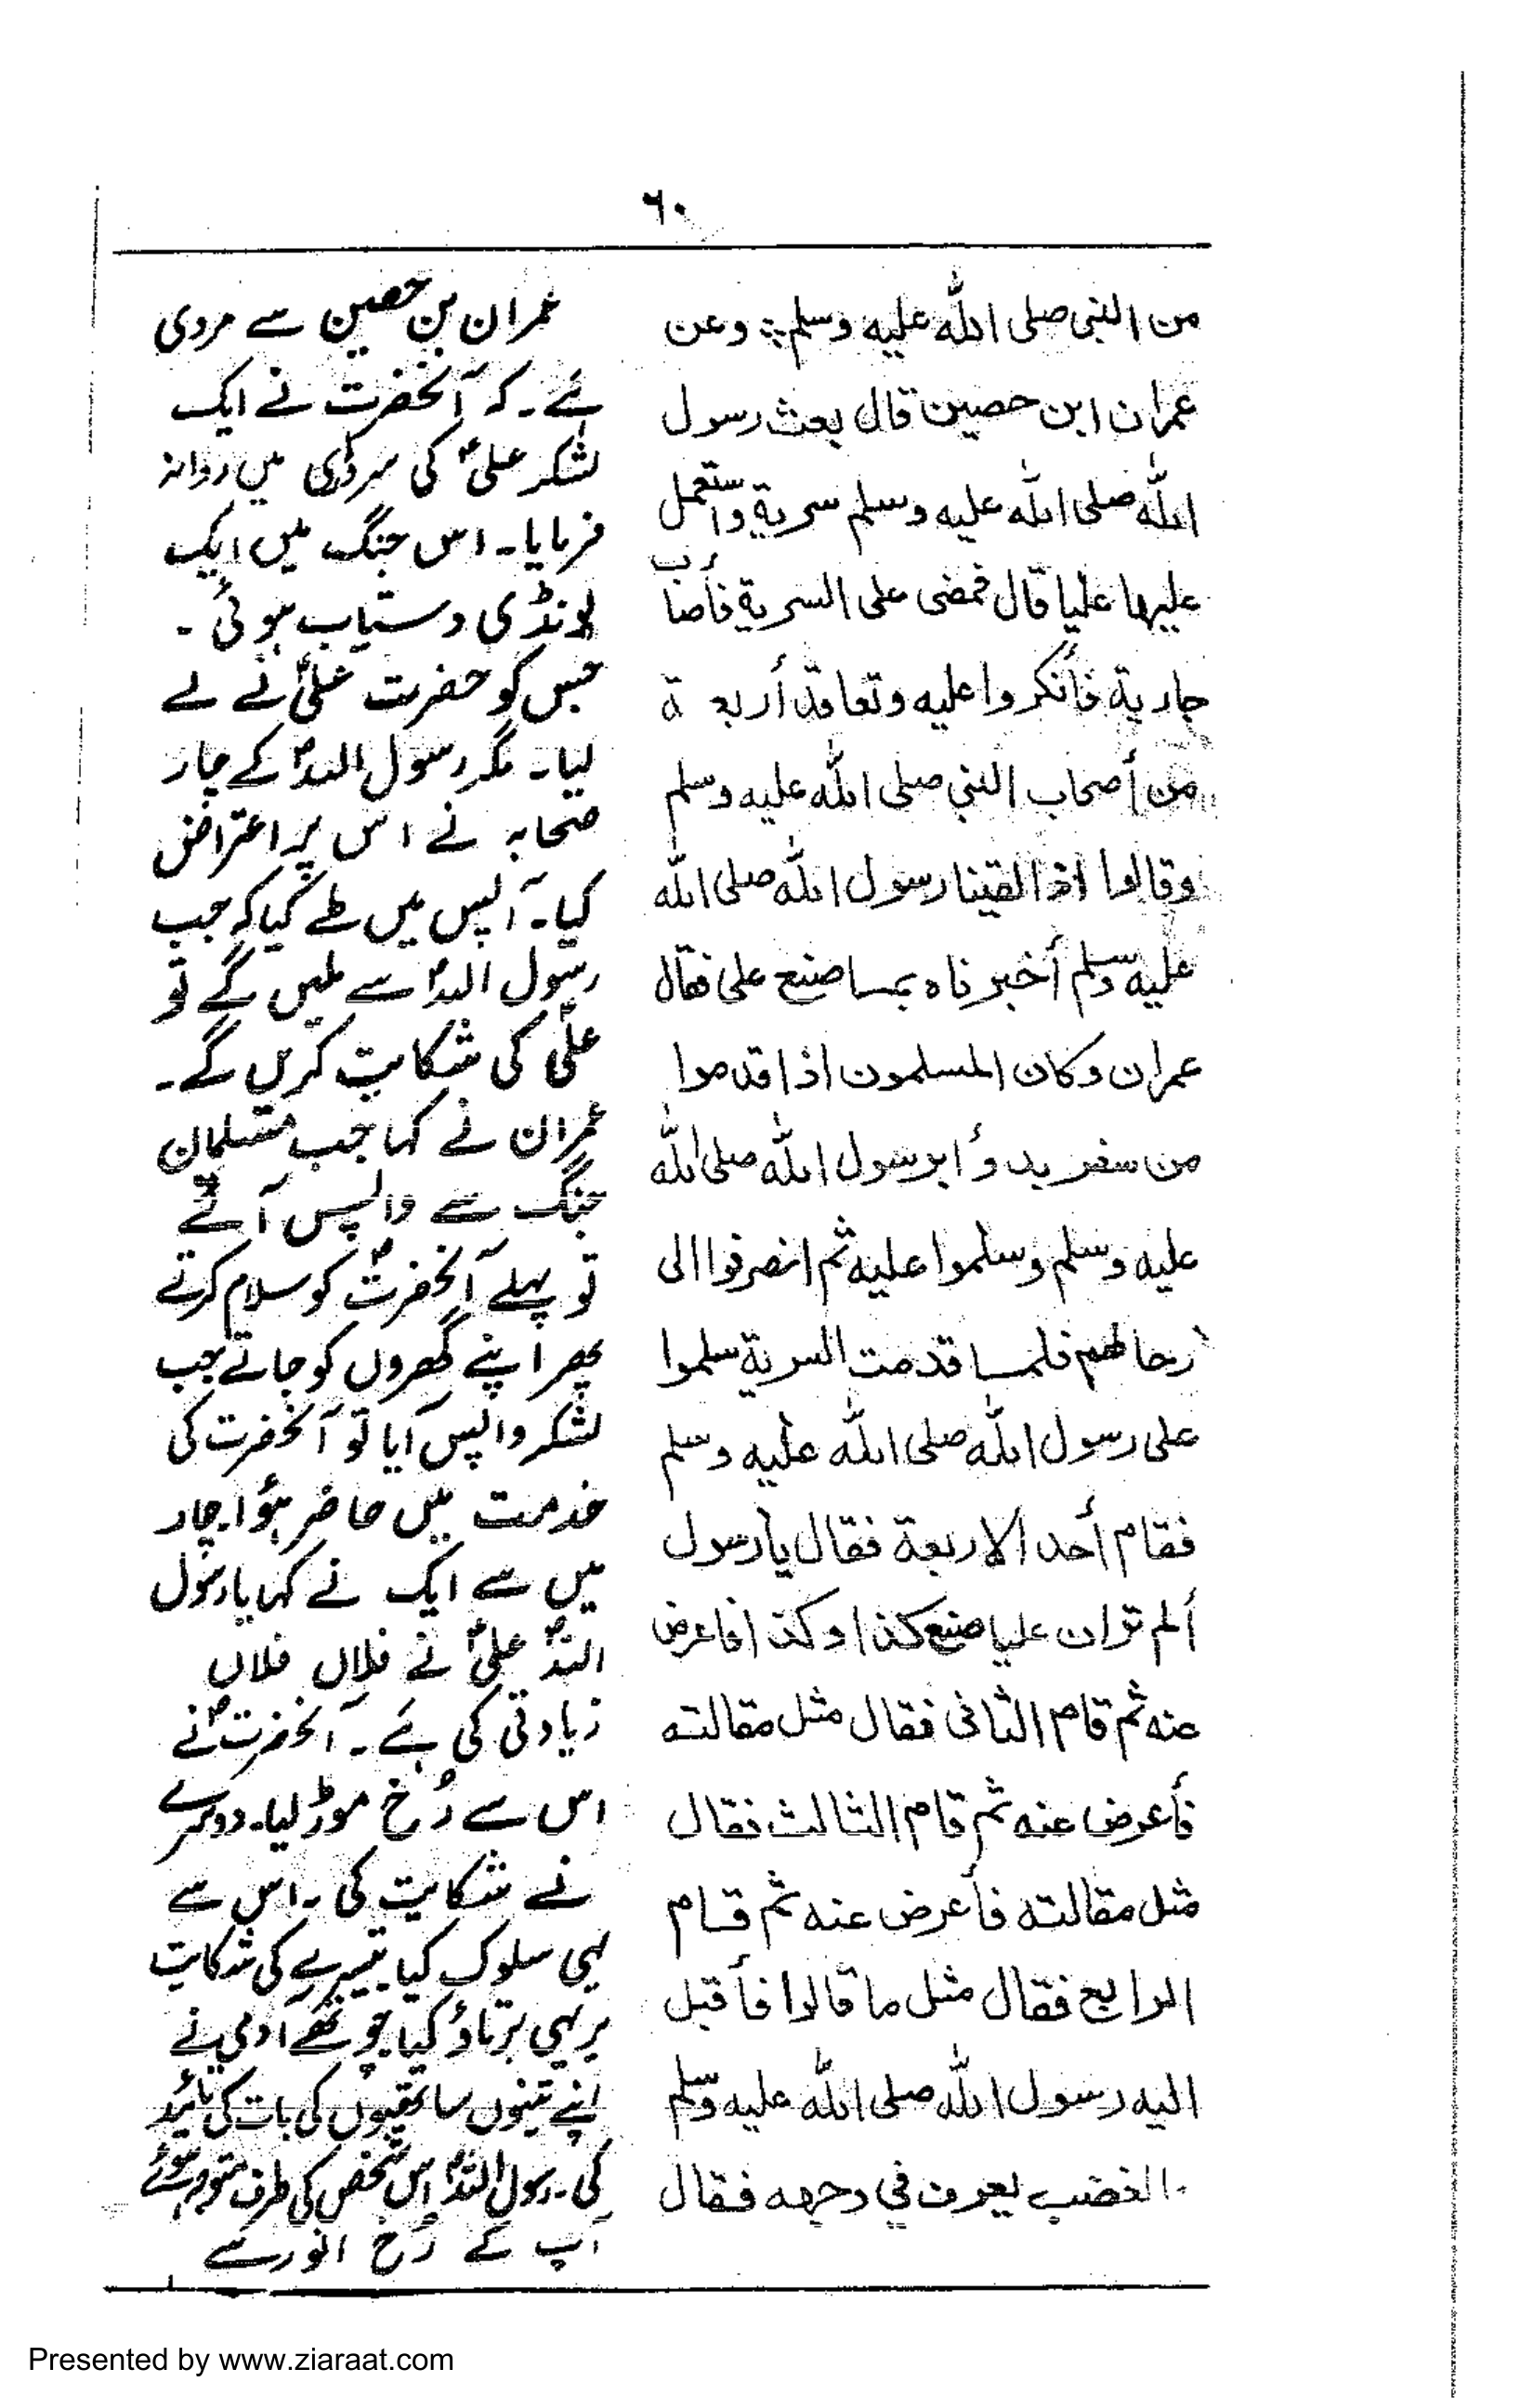 ٦٠
من النبي صلى الله عليه وسلم ؞ وعن
عمران ابن حصين قال بعث رسول
الله صلى الله عليه وسلم سرية واستعمل
عليها عليا قال فمضى على السرية فأصاب
جارية فأنكروا عليه وتعاقد أربعة
من أصحاب النبي صلى الله عليه وسلم
وقالوا اذا لقينا رسول الله صلى الله
عليه وسلم أخبرناه بمـا صنع على فقال
عمران وكان المسلمون اذا قدموا
من سفر بدؤا برسول الله صلى الله
عليه وسلم وسلموا عليه ثم انصرفوا الى
رحالهم فلمـا قدمت السرية سلموا
على رسول الله صلى الله عليه وسلم
فقام أحد الاربعة فقال يا رسول
ألم تر ان عليا صنع كذا وكذا فاعرض
عنه ثم قام الثانى فقال مثل مقالته
فأعرض عنه ثم قام الثالث فقال
مثل مقالته فأعرض عنه ثم قـام
الرابع فقال مثل ما قالوا فأقبل
اليه رسول الله صلى الله عليه وسلم
الغضب يعرف في وجهه فقال
عمران بن حصین سے مروی
ہے۔ کہ آنحضرت نے ایک
لشکر علیؑ کی سرداری میں روانہ
فرمایا۔ اس جنگ میں ایک
لونڈی دستیاب ہوئی۔
جس کو حضرت علیؑ نے لے
لیا۔ مگر رسول اللہؐ کے چار
صحابہ نے اس پر اعتراض
کیا۔ آپس میں طے کیا کہ جب
رسول اللہؐ سے ملیں گے تو
علیؑ کی شکایت کریں گے۔
عمران نے کہا جب مسلمان
جنگ سے واپس آتے
تو پہلے آنحضرتؐ کو سلام کرتے
پھر اپنے گھروں کو جاتے جب
لشکر واپس آیا تو آنحضرت کی
خدمت میں حاضر ہؤا۔ چار
میں سے ایک نے کہا یا رسول
اللہؐ علیؑ نے فلاں فلاں
زیادتی کی ہے۔ آنحضرتؐ نے
اس سے رُخ موڑ لیا۔ دوسرے
نے شکایت کی۔ اس سے
یہی سلوک کیا۔ تیسرے کی شکایت
پر یہی برتاؤ کیا۔ چوتھے آدمی نے
اپنے تینوں ساتھیوں کی بات کی تائید
کی۔ رسول اللہؐ اس شخص کی طرف متوجہ ہوئے
آپ کے رُخ انور سے
Presented by www.ziaraat.com